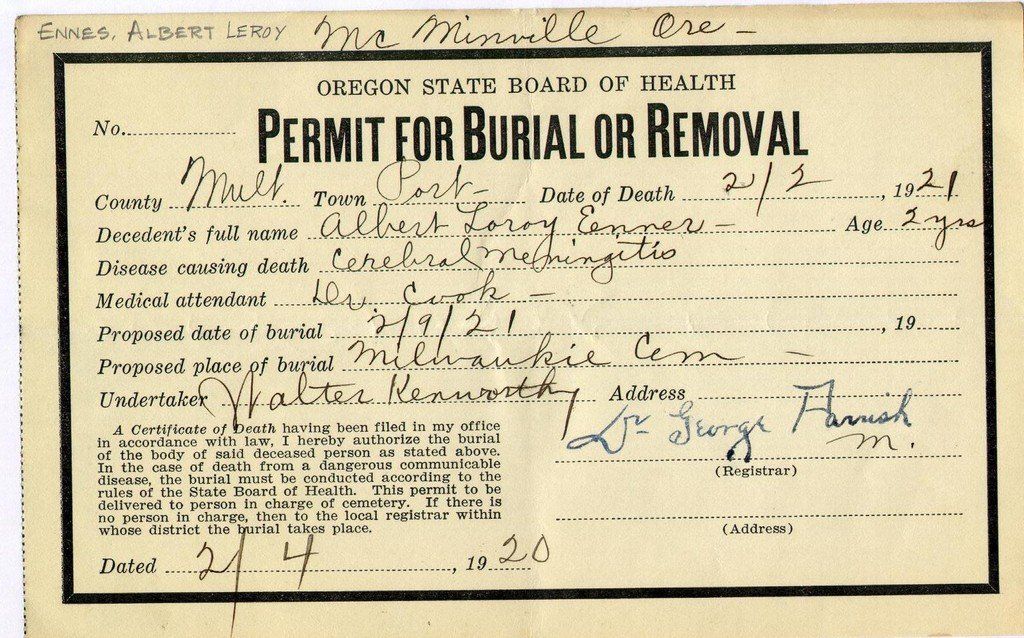 ENNES, ALBERT LEROY Mc Minville Ore –
OREGON STATE BOARD OF HEALTH
No.
PERMIT FOR BURIAL OR REMOVAL
County Mult. Town Port– Date of Death 2/2, 1921
Decedent's full name Albert Loroy Eenner – Age 2 yrs
Disease causing death Cerebral Meningitis
Medical attendant Dr Cook –
Proposed date of burial 2/9/21, 19
Proposed place of burial Milwaukie Cem –
Undertaker Walter Kenworthy Address
A Certificate of Death having been filed in my office
in accordance with law, I hereby authorize the burial
of the body of said deceased person as stated above.
In the case of death from a dangerous communicable
disease, the burial must be conducted according to the
rules of the State Board of Health. This permit to be
delivered to person in charge of cemetery. If there is
no person in charge, then to the local registrar within
whose district the burial takes place.
Dated 2/4, 1920
Dr George Parrish
M.
(Registrar)
(Address)